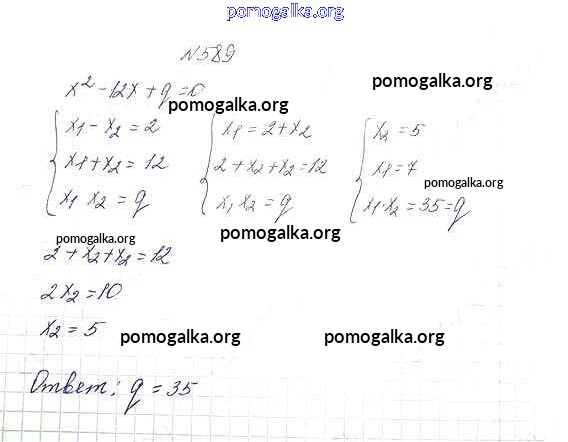 pomogalka.org
№589
x² - 12x + q = 0
pomogalka.org
pomogalka.org
{ x1 - x2 = 2 { x1 = 2 + x2 { x2 = 5
x1 + x2 = 12 2 + x2 + x2 = 12 x1 = 7
pomogalka.org
x1 x2 = q x1 x2 = q x1 · x2 = 35 = q
pomogalka.org pomogalka.org
2 + x2 + x2 = 12
2x2 = 10
x2 = 5
pomogalka.org pomogalka.org
Ответ: q = 35